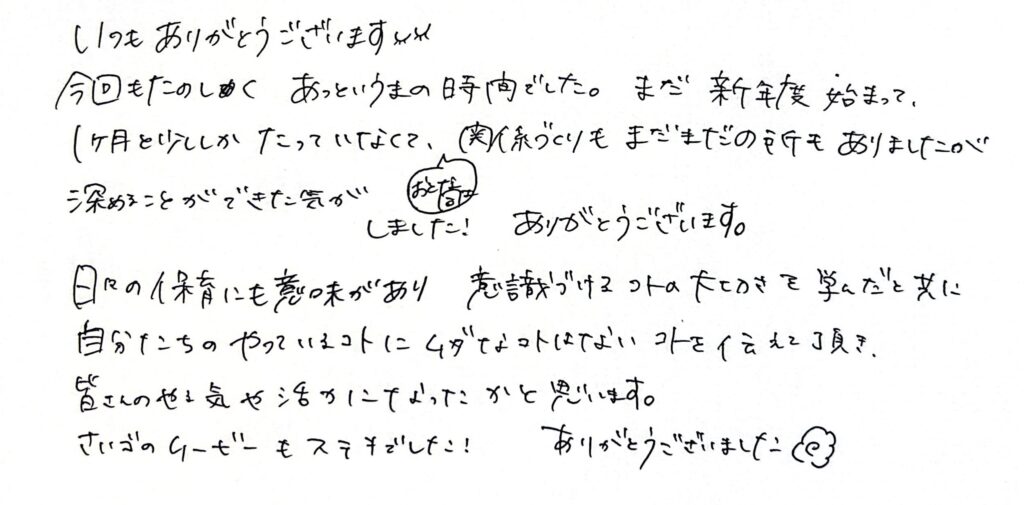 いつもありがとうございます
今回もたのしく あっというまの時間でした。 まだ 新年度 始まって、
1ヶ月と少ししか たっていなくて、関係づくりも まだまだの所も ありましたが
おとな間は
深めることができた気が
しました! ありがとうございます。
日々の保育にも意味があり 意識づけるコトの大切さを学んだと共に
自分たちの やっているコトに ムダなコトはない コトを伝えて頂き、
皆さんのやる気や活力になったかと思います。
さいごのムービーもステキでした! ありがとうございました